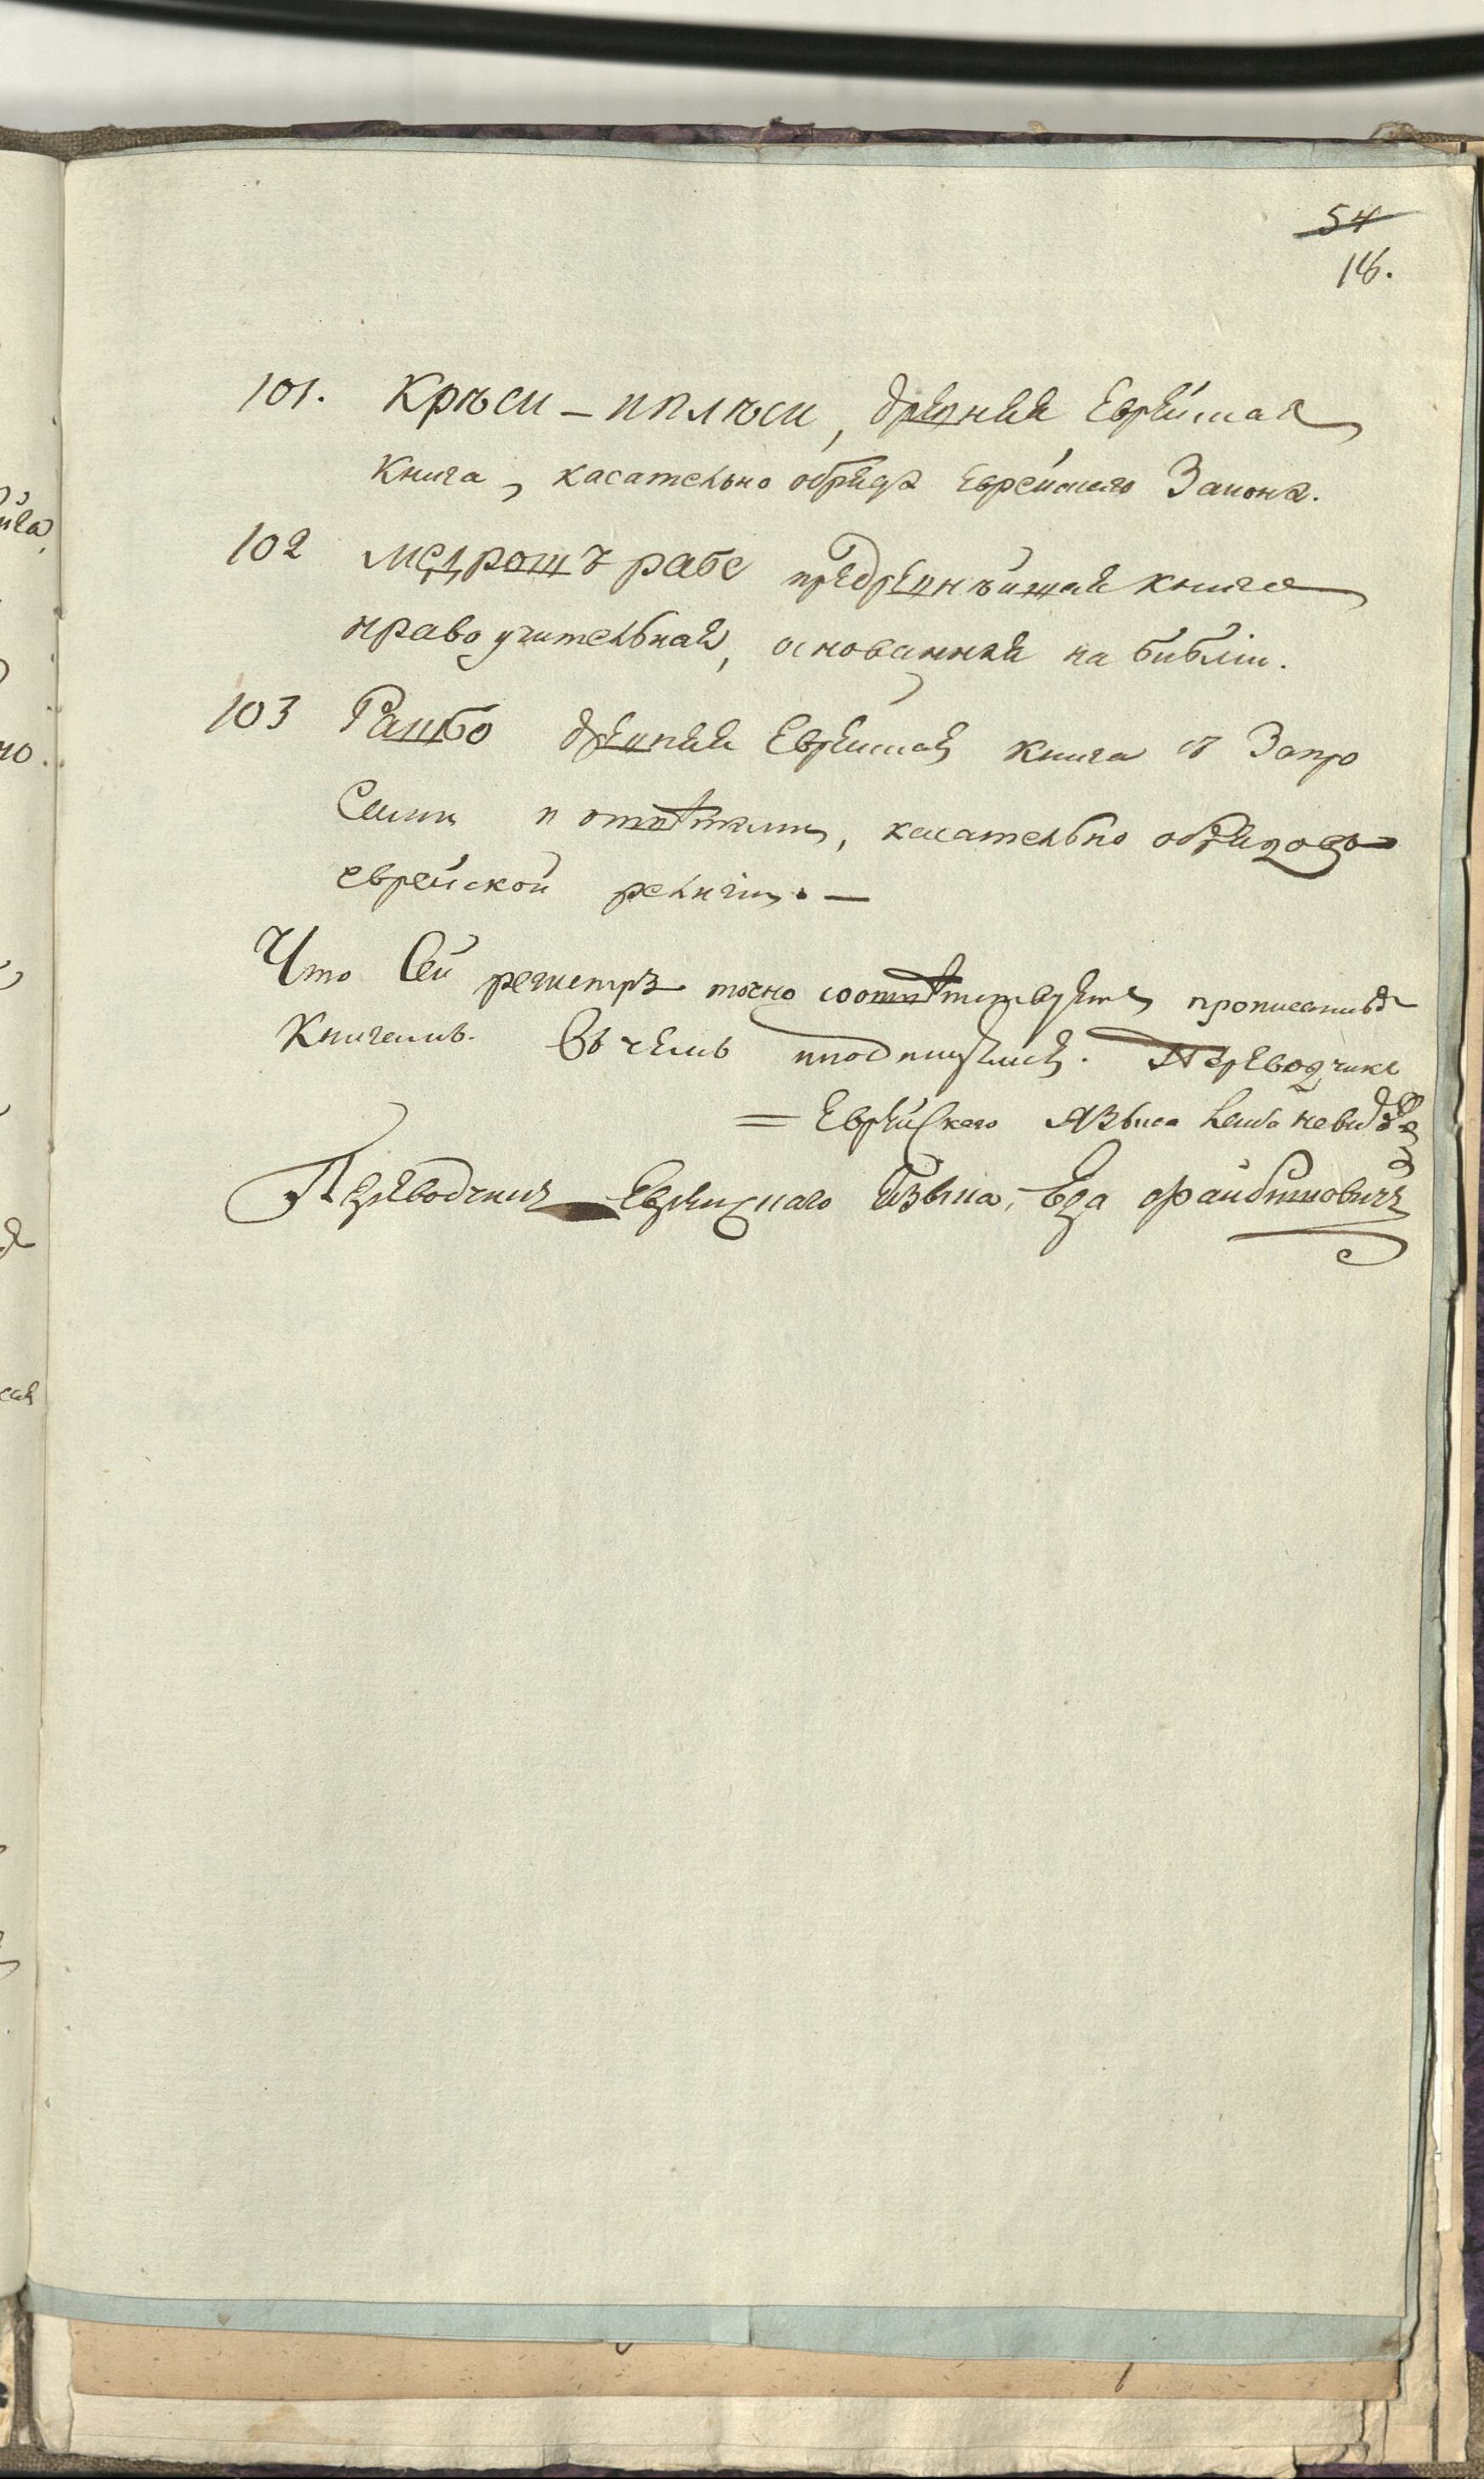 54
16.
101. Крѣси – иплѣси, древняя Еврейская
книга, касательно обряда еврейского Закона.
102 медрошъ рабе предревнѣйшая книга
нравоучительная, основанная на библіи.
103 Рашбо древняя Еврейская книга съ Запро
сами и отвѣтами, касательно обрядовъ
еврейской религіи. —
Что Сей регистръ точно соотвѣтствуетъ прописаннымъ
Книгамъ. Въ чемъ подписуемся. Переводчикъ
= Еврейскаго Языка Лейба
Переводчикъ Еврейскаго Языка,